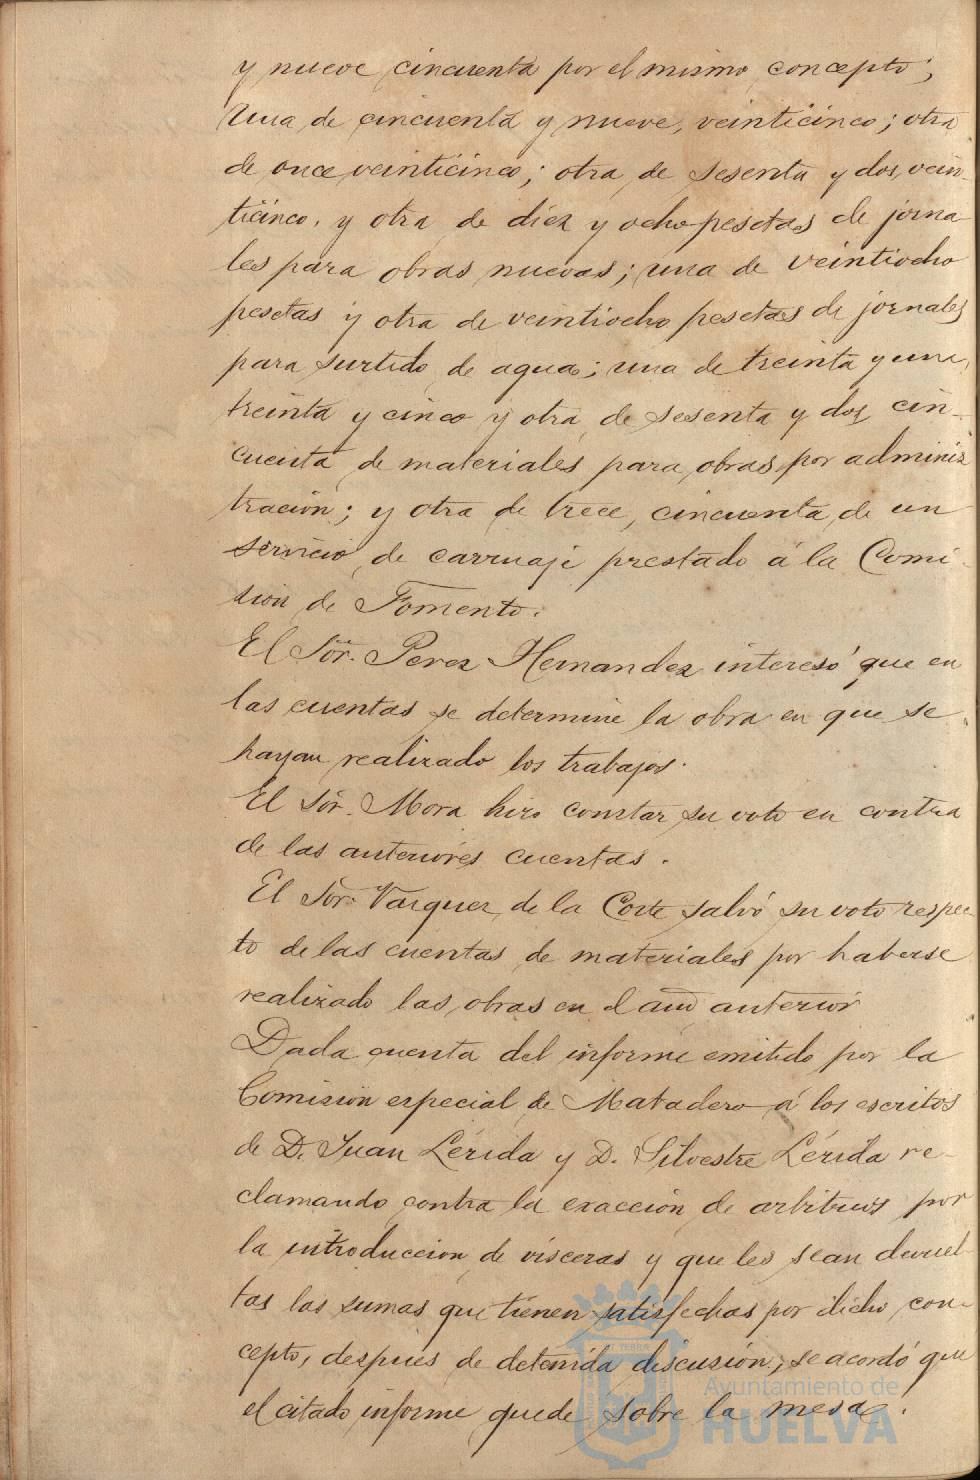 y nueve cincuenta por el mismo concepto;
Una de cincuenta y nueve, veinticinco; otra
de once veinticinco; otra de sesenta y dos, vein-
ticinco, y otra de diez y ocho pesetas de jorna-
les para obras nuevas; una de veintiocho
pesetas y otra de veintiocho pesetas de jornales
para surtido de agua; una de treinta y una,
treinta y cinco y otra de sesenta y dos, cin-
cuenta de materiales para obras por adminis
tración; y otra de trece, cincuenta de un
servicio de carruaje prestado á la Comi-
sion de Fomento.
El Sör. Perez Hernandez interesó que en
las cuentas se determine la obra en que se
hayan realizado los trabajos.
El Sör. Mora hizo constar su voto en contra
de las anteriores cuentas.
El Sör. Vazquez de la Corte salvó su voto respec-
to de las cuentas de materiales por haberse
realizado las obras en el año anterior
Dada cuenta del informe emitido por la
Comision especial de Matadero á los escritos
de D. Juan Lérida y D. Silvestre Lérida re-
clamando contra la exacción de arbitrios por
la introduccion de visceras y que les sean devuel-
tas las sumas que tienen satisfechas por dicho con-
cepto, despues de detenida discusión, se acordó que
el citado informe quede sobre la mesa.
Ayuntamiento de
HUELVA